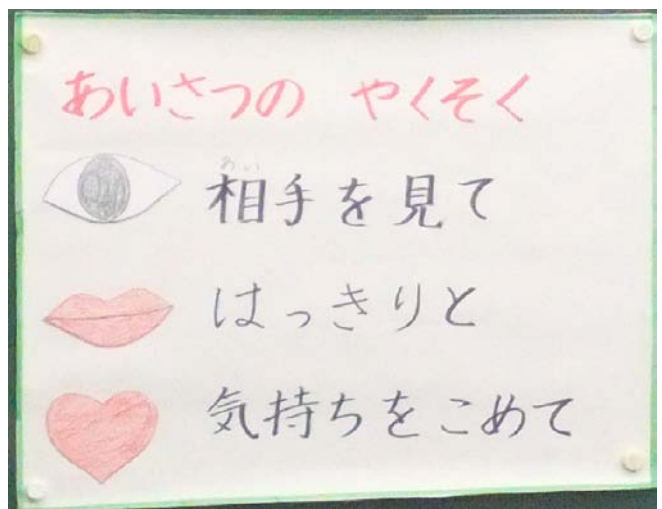 あいさつの やくそく
相手を見て
はっきりと
気持ちをこめて